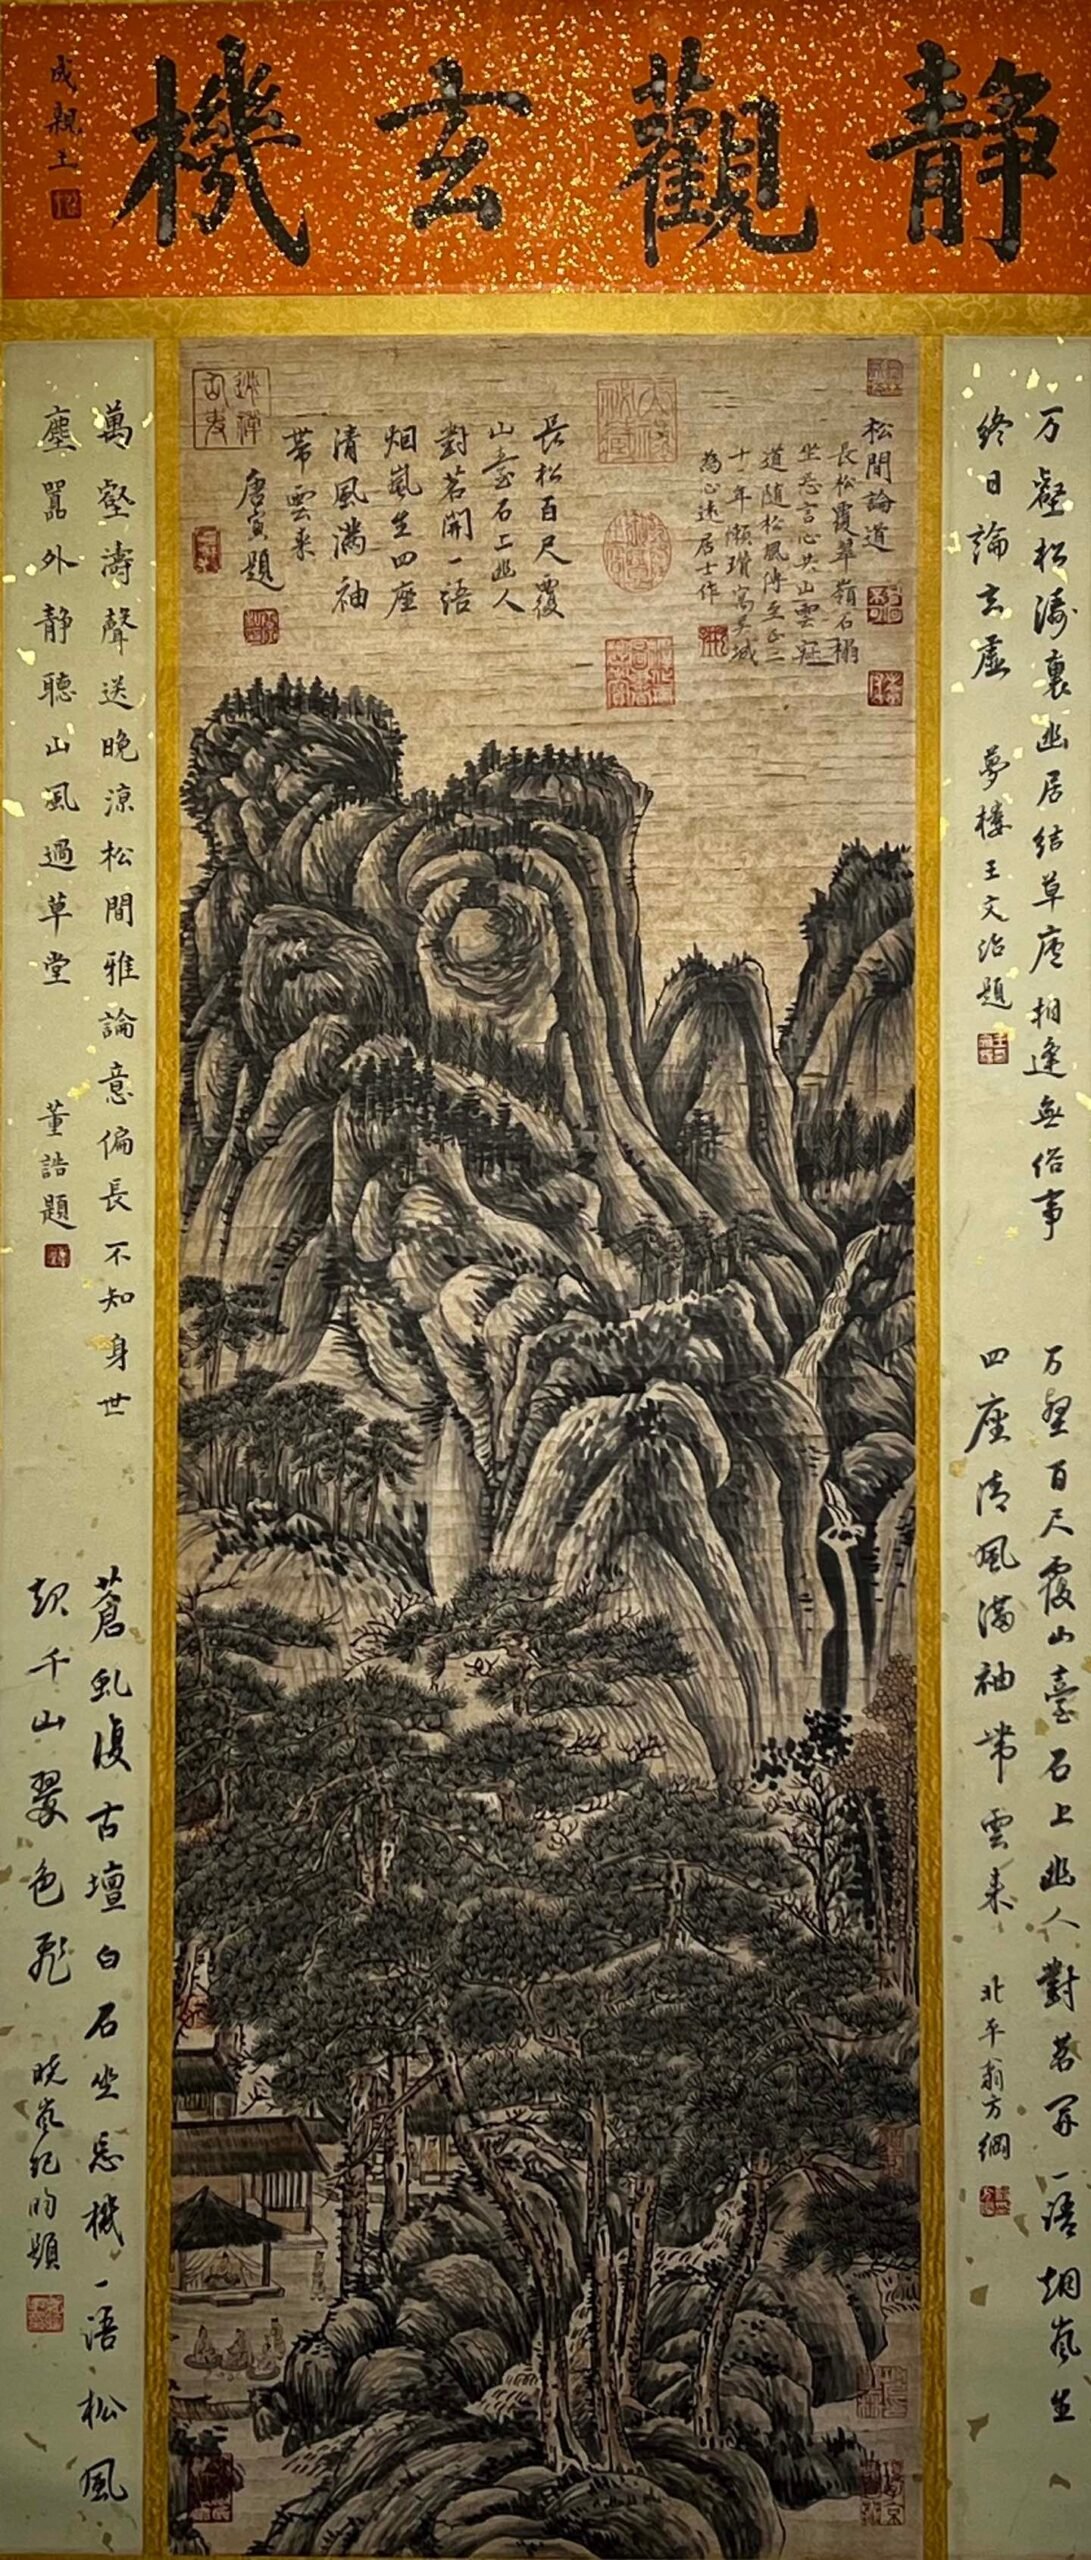 靜觀玄機
成親王
万壑松濤裏幽居結草廬相逢無俗事
終日論玄虛
夢樓王文治題
万壑百尺覆山臺石上幽人對茗開一語烟嵐生
四座清風滿袖帶雲來
北平翁方綱
松間論道
長松覆翠嶺石榻
坐忘言心共山雲寂
道隨松風傳至正二
十年懶瓚寫吳城
為心遠居士作
長松百尺覆
山臺石上幽人
對茗開一語
烟嵐生四座
清風滿袖
帶雲來
唐寅題
萬壑濤聲送晚涼松間雅論意偏長不知身世
塵囂外靜聽山風過草堂
董誥題
蒼虬復古壇白石坐忘機一語松風
起千山翠色飛
曉嵐紀昀題